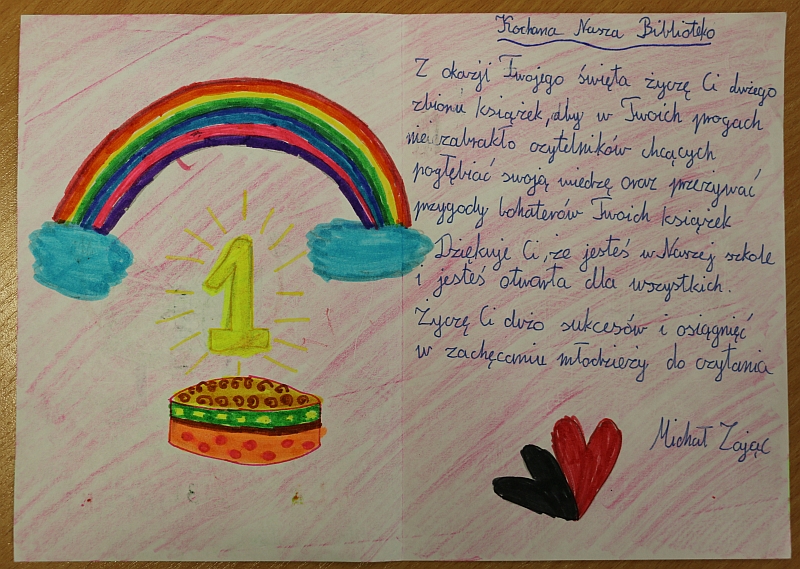 Kochana Nasza Biblioteko
Z okazji Twojego święta życzę Ci dużego
zbioru książek, aby w Twoich progach
nie zabrakło czytelników chcących
pogłębiać swoją wiedzę oraz przeżywać
przygody bohaterów Twoich książek
Dziękuje Ci, że jesteś w Naszej szkole
i jesteś otwarta dla wszystkich.
Życzę Ci dużo sukcesów i osiągnięć
w zachęcaniu młodzieży do czytania
Michał Zając
1